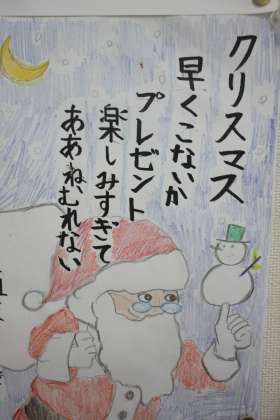 クリスマス
早くこないか
プレゼント
楽しみすぎて
ああねむれない